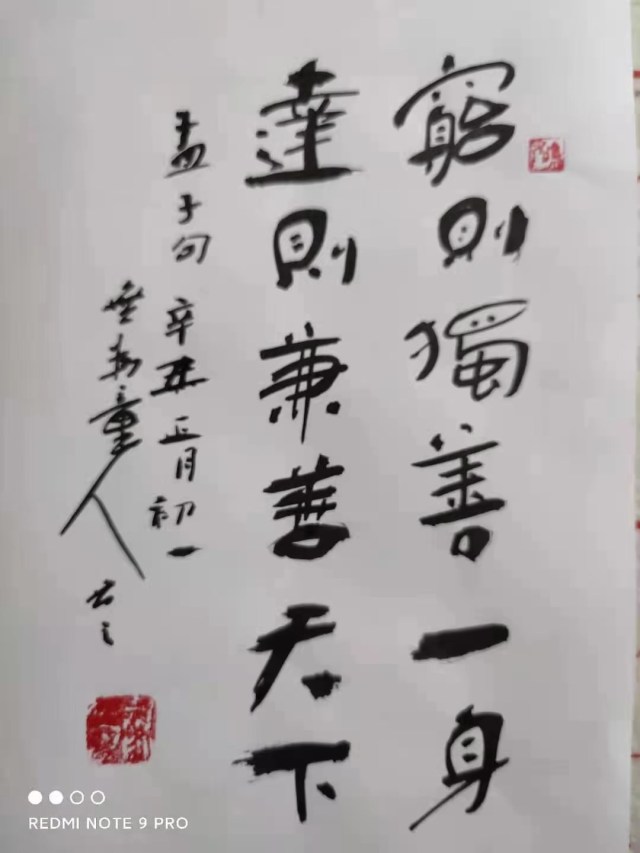 窮則獨善一身
達則兼善天下
孟子句 辛丑正月初一
童人
REDMI NOTE 9 PRO